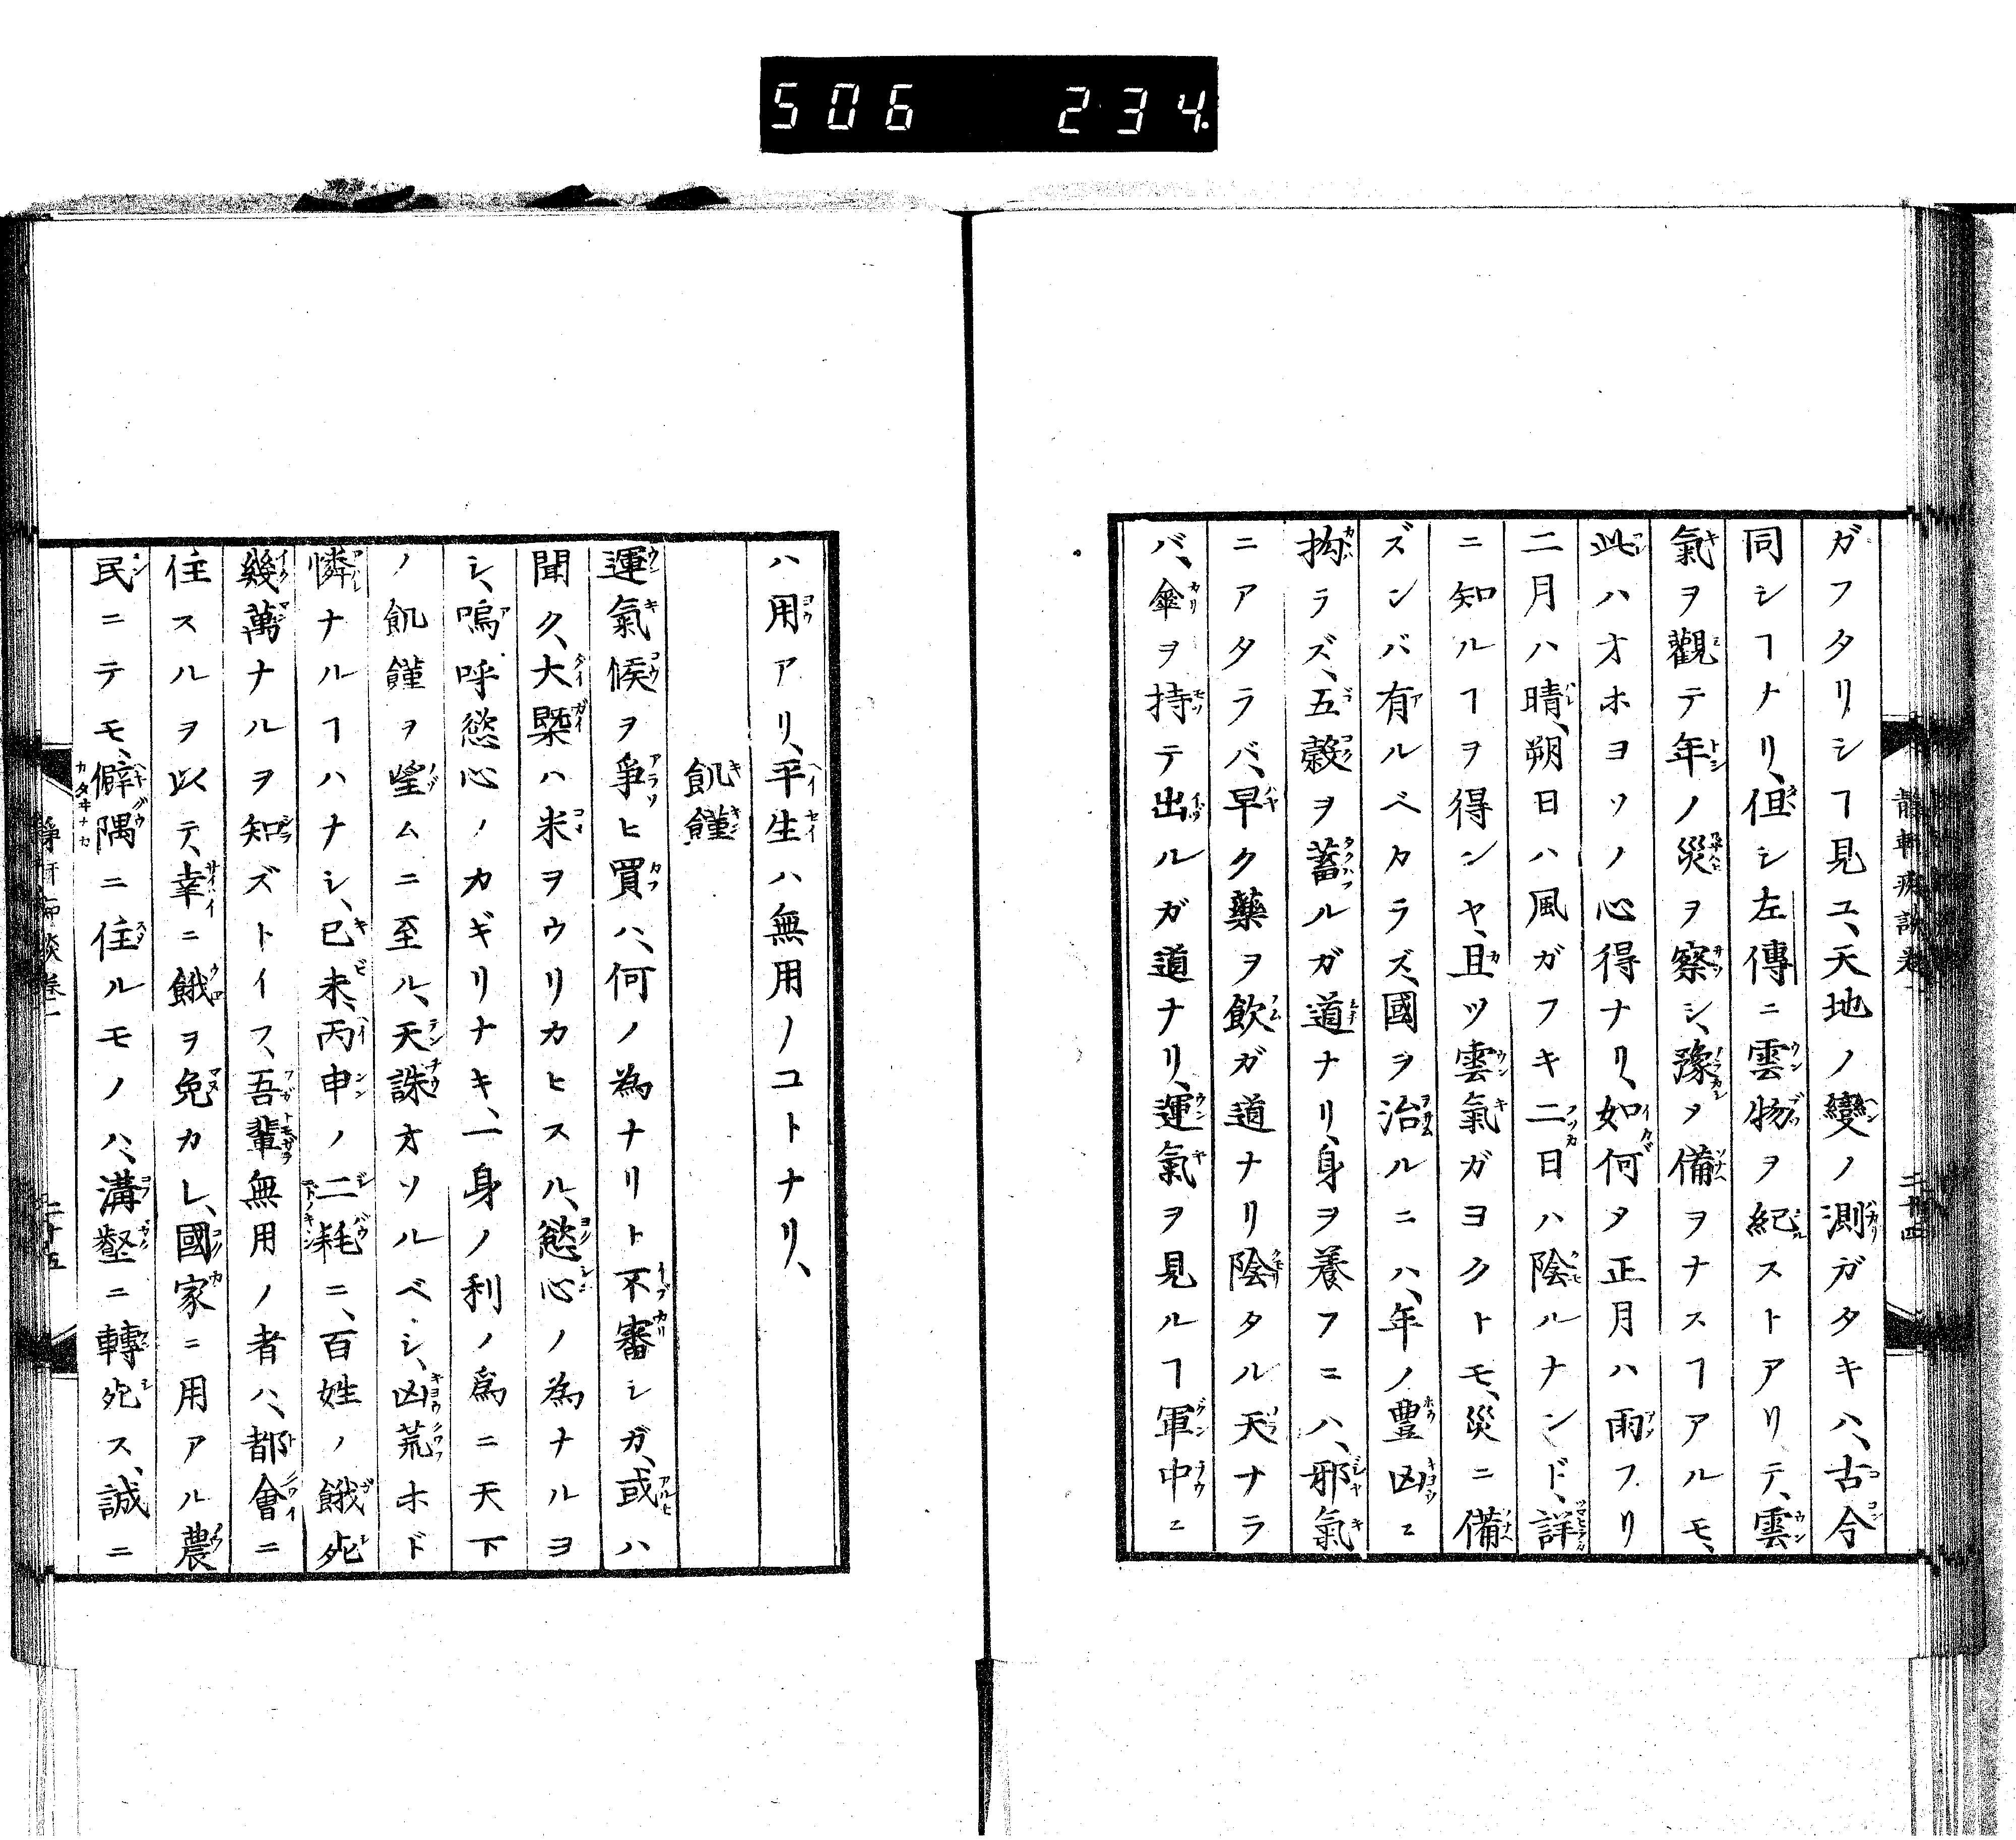 506 234.
ガフタリシヿ見ユ、天地ノ變ノ測ガタキハ、古今
同シヿナリ、但シ左傳ニ雲物ヲ紀ストアリテ、雲
氣ヲ觀テ年ノ災ヲ察シ、豫メ備ヲナスヿアルモ、
此ハオホヨソノ心得ナリ、如何タ正月ハ雨フリ
二月ハ晴、朔日ハ風ガフキ二日ハ陰ルナンド、詳
ニ知ルヿヲ得ンヤ、且ツ雲氣ガヨクトモ、災ニ備
ズンバ有ルベカラズ、國ヲ治ルニハ、年ノ豊凶ニ
拘ラズ、五穀ヲ蓄ルガ道ナリ、身ヲ養フニハ、邪氣
ニアタラバ、早ク藥ヲ飲ガ道ナリ陰タル天ナラ
バ、傘ヲ持テ出ルガ道ナリ、運氣ヲ見ルヿ軍中ニ
二十四
ハ用アリ、平生ハ無用ノコトナリ、
飢饉
運氣候ヲ爭ヒ買ハ、何ノ為ナリト不審シガ、或ハ
聞ク、大槩ハ米ヲウリカヒスル、慾心ノ為ナルヨ
シ、嗚呼慾心ノカギリナキ、一身ノ利ノ爲ニ天下
ノ飢饉ヲ望ムニ至ル、天誅オソルベシ、凶荒ホド
憐ナルヿハナシ、已未、丙申ノ二耗ニ、百姓ノ餓死
幾萬ナルヲ知ズトイフ、吾輩無用ノ者ハ、都會ニ
住スルヲ以テ、幸ニ餓ヲ免カレ、國家ニ用アル農
民ニテモ、僻隅ニ住ルモノハ、溝壑ニ轉死ス、誠ニ
二十五